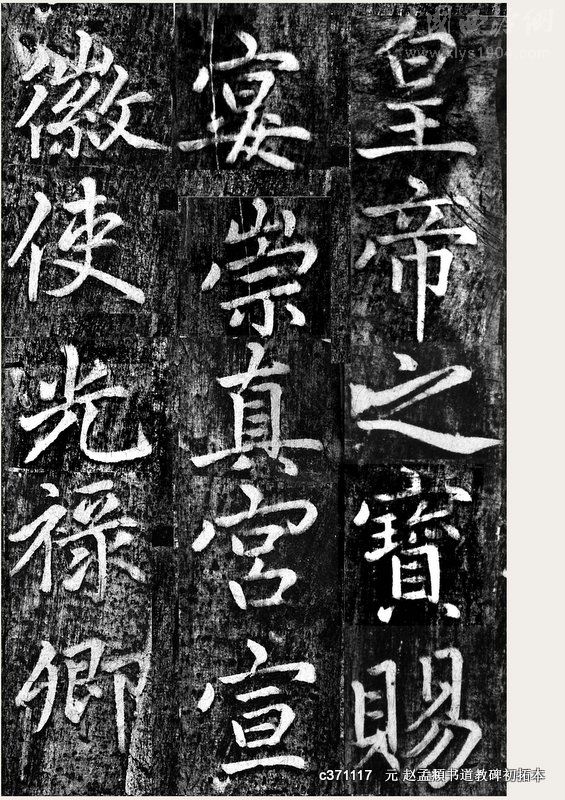 皇帝之寶賜
宴崇真宮宣
徽使光祿卿
www.xlys1904.com
c371117 元 赵孟頫书道教碑初拓本